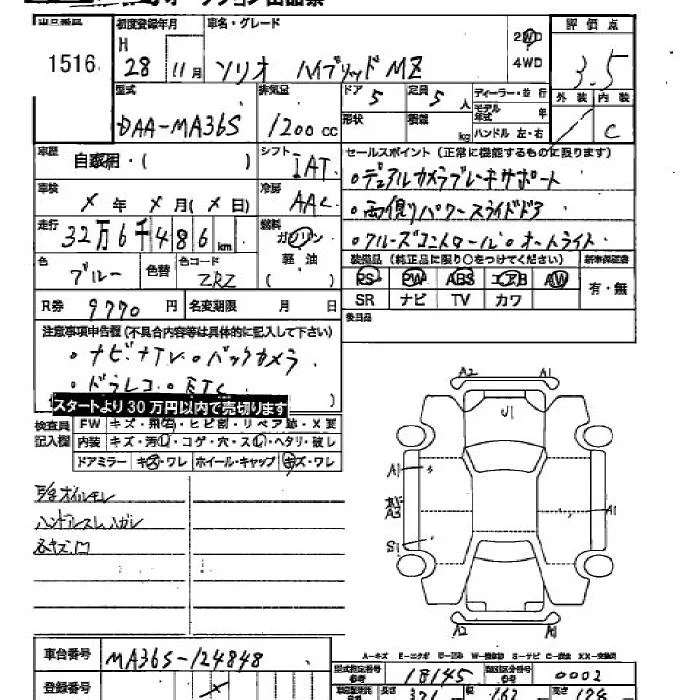 出品番号 初度登録年月 車名・グレード 評価点
1516 H 28 年 11 月 ソリオ ハイブリッド MZ 2WD 4WD 3.5
外装 内装
C
型式 排気量 ドア 定員 ディーラー・並行
DAA-MA36S 1200 cc 5 5 人 モデル年式 年
形状 積載 kg ハンドル 左・右
車歴 自家用・( ) シフト IAT セールスポイント (正常に機能するものに限ります)
デュアルカメラブレーキサポート
車検 X 年 X 月 ( X 日) 冷房 AAC 両側パワースライドドア
走行 32万6千486 km 燃料 ガソリン 軽油 ( ) クルーズコントロール オートライト
色 ブルー 色替 色コード ZRZ 装備品 (純正品に限り○をつけてください) 新車保証書
PS PW ABS エアB AW 有・無
SR ナビ TV カワ
R券 9770 円 名変期限 月 日 後日品
注意事項申告欄 (不具合内容等は具体的に記入して下さい)
・ナビ・TV・バックカメラ
・ドラレコ・ETC
スタートより30万円以内で売切ります
検査員記入欄 FW キズ・飛石・ヒビ割・リペア跡・X要
内装 キズ・汚レ・コゲ・穴・スレ・ヘタリ・破レ
ドアミラー キズ・ワレ ホイール・キャップ キズ・ワレ
オイルモレ
ハンドルスレ ハガレ
A2 A1
U1
A1
A3 A1
S1
A2 A1
車台番号 MA36S-124848
登録番号 X
型式指定番号 18145 類別区分番号 0002
長さ 371 幅 162 高さ